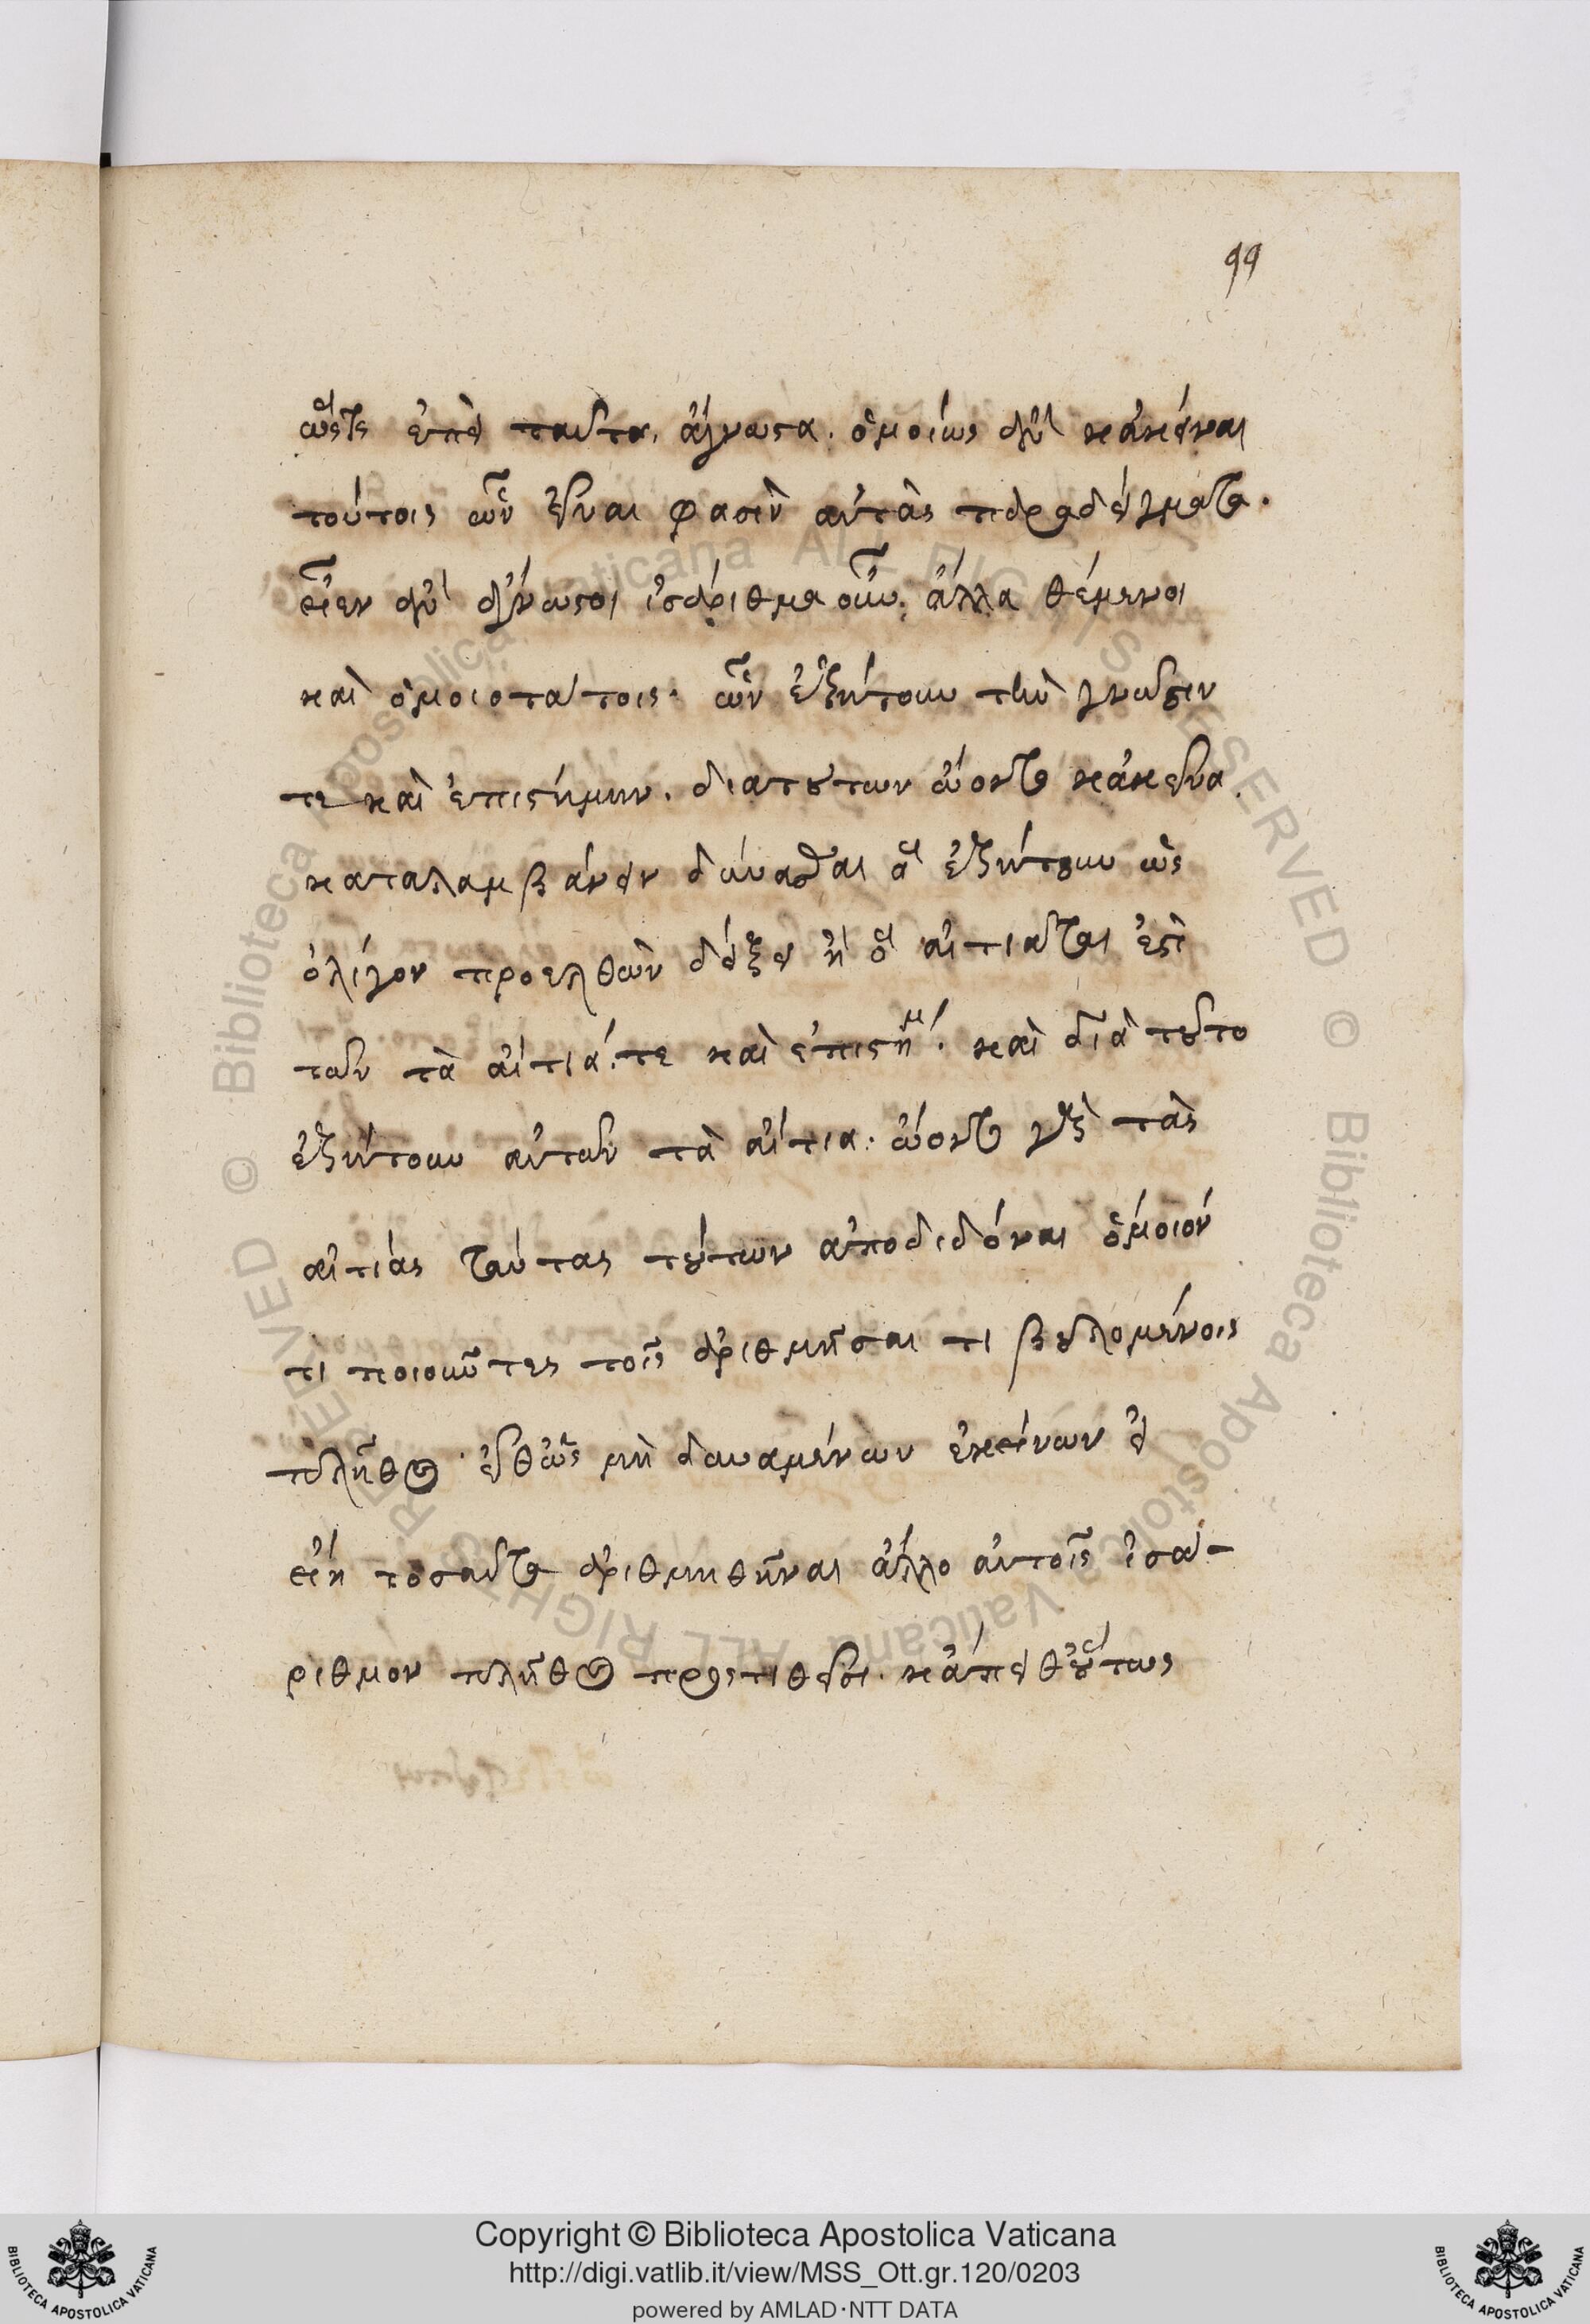 99
ὥστε ἐπεὶ ταῦτα. ἄγνωστα. ὁμοίως ἂν κἀκεῖναι
τούτοις ὧν εἶναι φασὶν αὐτὰς παραδείγματα.
εἶεν ἂν ἄγνωστοι ἰσάριθμα οὖν. ἄλλα θέμενοι
καὶ ὁμοιοτάτοις. ὧν ἐζήτουν τὴν γνῶσιν
τε καὶ ἐπιστήμην. διατούτων ᾤοντο κἀκεῖνα
καταλαμβάνειν δύνασθαι ἃ ἐζήτουν ὡς
ὀλίγον προελθὼν δόξει ἢ ὃ αἰτιᾶται ἐστὶ
τῶν τὰ αἴτιά. τε καὶ ἐπιστήμ. καὶ διὰ τοῦτο
ἐζήτουν αὐτῶν τὰ αἴτια. ᾤοντο γὰρ τὰς
αἰτίας ταύτας τούτων ἀποδιδόναι ὅμοιόν
τι ποιοῦντες τοῖς ἀριθμῆσαι τι βουλομένοις
πλῆθος εἶθ ὡς μὴ δυναμένων ἐκείνων εἰ
εἴη τοσαῦτα ἀριθμηθῆναι ἄλλο αὐτοῖς ἰσά-
ριθμον πλῆθος προστιθεῖσι. κἄπειθ οὕτως
Copyright © Biblioteca Apostolica Vaticana
http://digi.vatlib.it/view/MSS_Ott.gr.120/0203
powered by AMLAD·NTT DATA
BIBLIOTECA APOSTOLICA VATICANA
BIBLIOTECA APOSTOLICA VATICANA
© Biblioteca Apostolica Vaticana ALL RIGHTS RESERVED © Biblioteca Apostolica Vaticana ALL RIGHTS RESERVED